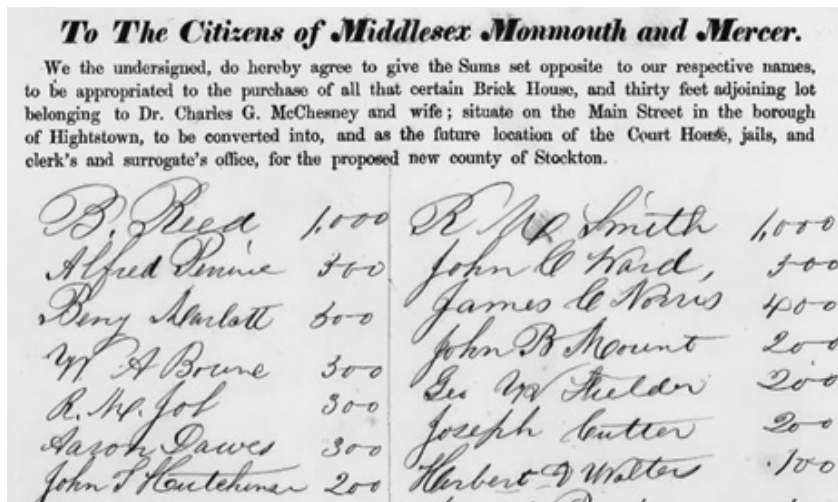 To The Citizens of Middlesex Monmouth and Mercer.
We the undersigned, do hereby agree to give the Sums set opposite to our respective names,
to be appropriated to the purchase of all that certain Brick House, and thirty feet adjoining lot
belonging to Dr. Charles G. McChesney and wife; situate on the Main Street in the borough
of Hightstown, to be converted into, and as the future location of the Court House, jails, and
clerk's and surrogate's office, for the proposed new county of Stockton.
B. Reed 1,000
Alfred 500
Benj Marlatt 500
W A Bowne 300
R. M. Job 300
Aaron Dawes 300
John S Hutchinson 200
R Mc Smith 1,000
John C Ward, 500
James C Norris 400
John B Mount 200
Geo W Fielder 200
Joseph Cutter 200
Herbert Walters 100